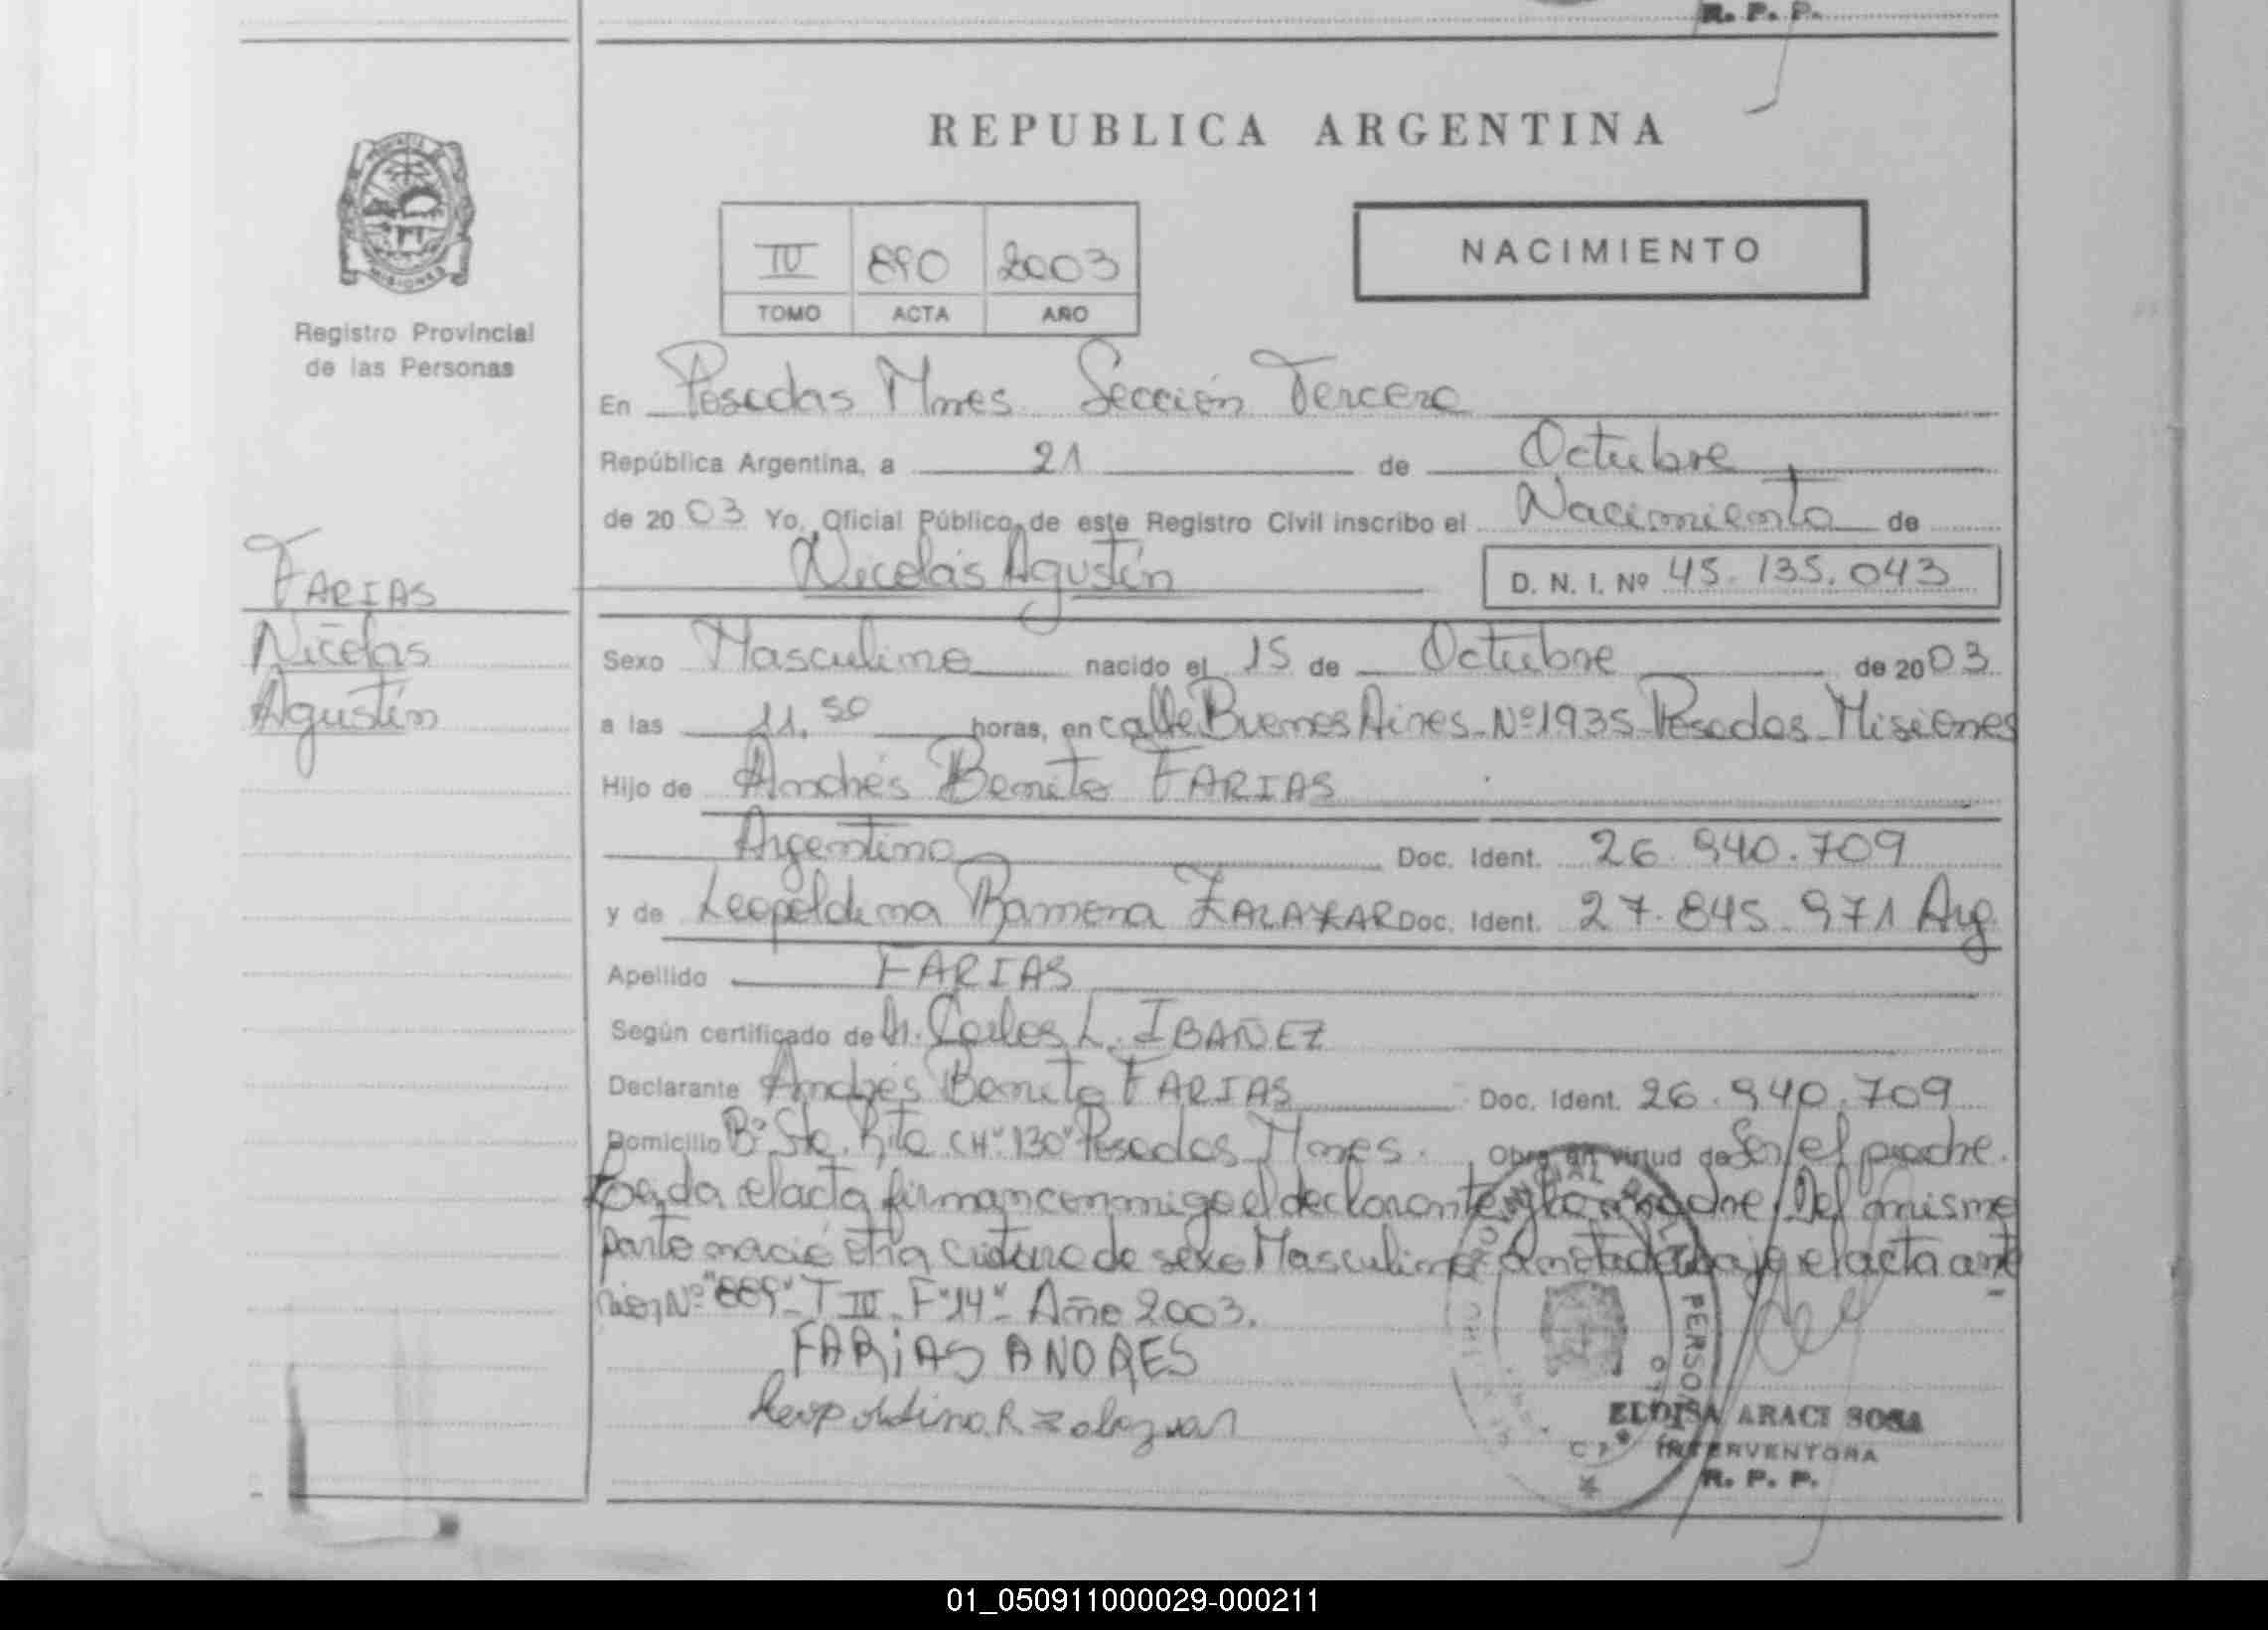 R. P. P.
REPUBLICA ARGENTINA
PROVINCIA DE
MISIONES
Registro Provincial
de las Personas
IV 890 2003
TOMO ACTA AÑO
NACIMIENTO
En Posadas Mnes Sección Tercera
República Argentina, a 21 de Octubre
de 2003 Yo, Oficial Público de este Registro Civil inscribo el Nacimiento de
Nicolás Agustín
D. N. I. Nº 45.135.043
FARIAS
Nicolás
Agustín
Sexo Masculino nacido el 15 de Octubre de 2003
a las 11,50 horas, en calle Buenos Aires Nº 1935 Posadas Misiones
Hijo de Andrés Benito FARIAS
Argentino Doc. Ident. 26.940.709
y de Leopoldina Ramona ZALAZAR Doc. Ident. 27.845.971 Arg.
Apellido FARIAS
Según certificado de Dr. Carlos L. IBAÑEZ
Declarante Andrés Benito FARIAS Doc. Ident. 26.940.709
Domicilio Bº Sta. Rita CH "130" Posadas Mnes. Obra en virtud de Ser el padre.
Leida el acta firman conmigo el declarante y la madre. Del mismo
parto nació otra criatura de sexo Masculino anotada bajo el acta ante
rior Nº "889" T IV F "14" Año 2003.
FARiAS ANDRES
Leopoldina R Zalazar
PERSO
ELOISA ARACI SOSA
INTERVENTORA
R. P. P.
01_050911000029-000211